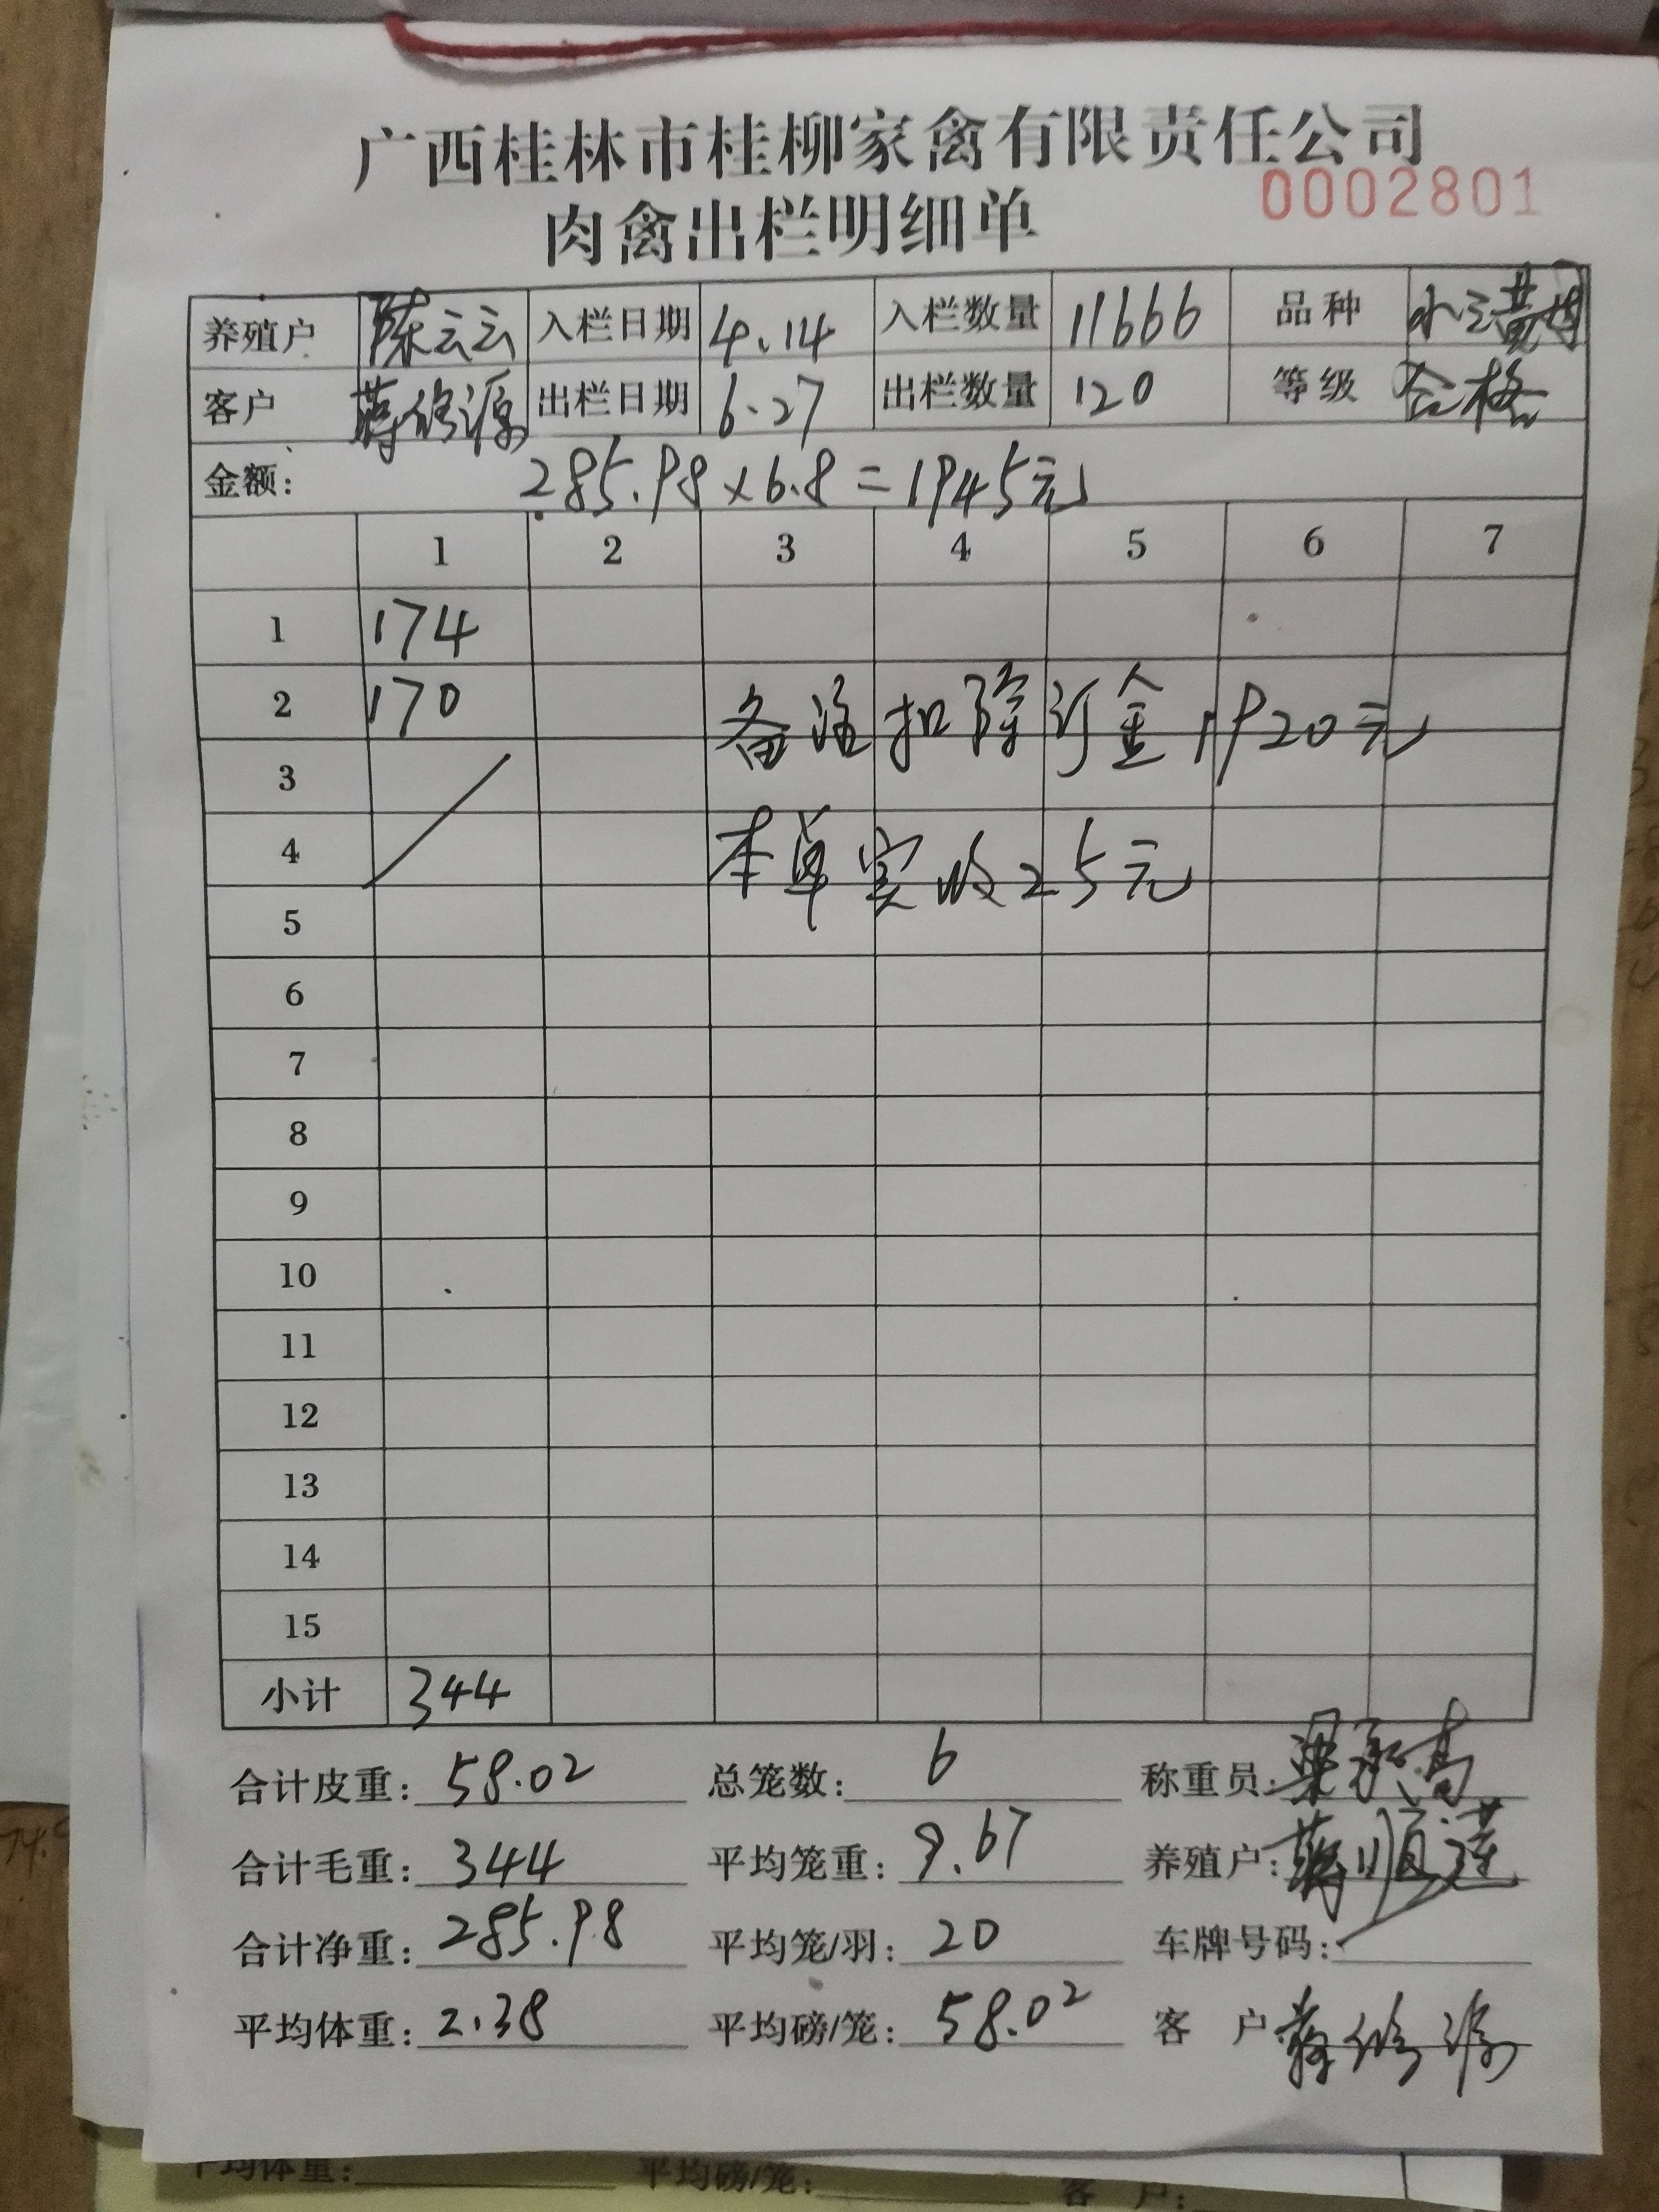 广西桂林市桂柳家禽有限责任公司
肉禽出栏明细单
0002801
养殖户 陈云云 入栏日期 4.14 入栏数量 11666 品种
客户 蒋修源 出栏日期 6.27 出栏数量 120 等级 合格
金额: 285.98×6.8=1945元
1 2 3 4 5 6 7
1 174
2 170
备注扣除订金1920元
3
4
本单实收25元
5
6
7
8
9
10
11
12
13
14
15
小计 344
合计皮重: 58.02 总笼数: 6 称重员:
合计毛重: 344 平均笼重: 9.67 养殖户: 蒋顺莲
合计净重: 285.98 平均笼/羽: 20 车牌号码:
平均体重: 2.38 平均磅/笼: 58.02 客 户 蒋修源
平均体重: 平均磅/笼: 客 户: